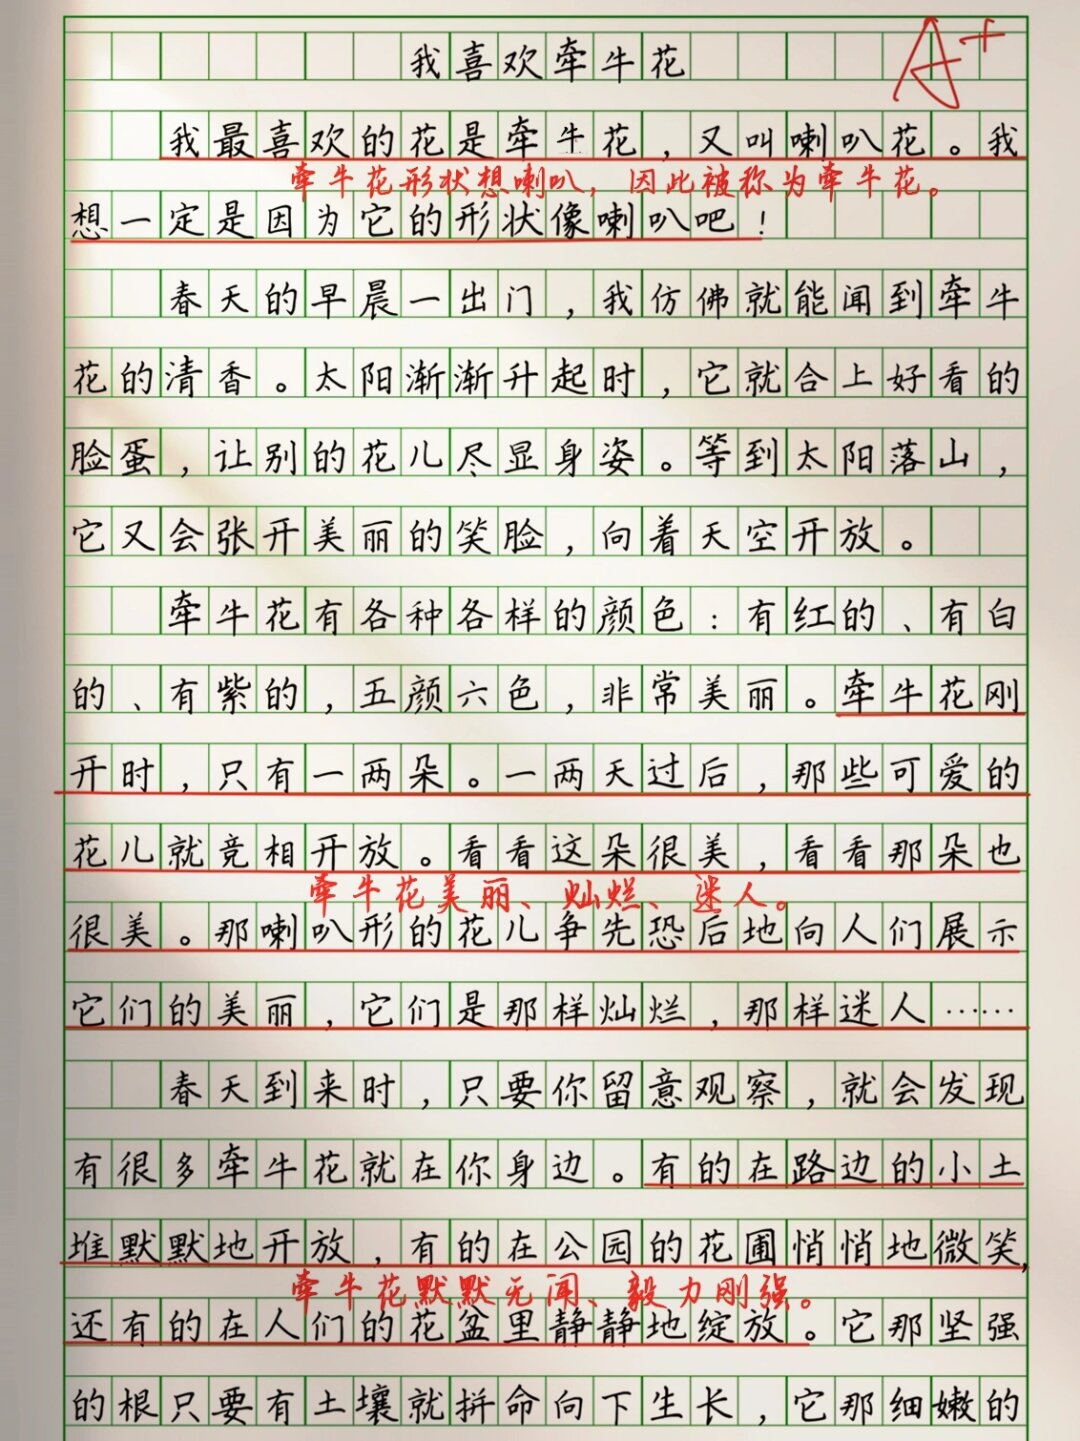 我喜欢牵牛花
A+
我最喜欢的花是牵牛花，又叫喇叭花。我
牵牛花形状想喇叭，因此被称为牵牛花。
想一定是因为它的形状像喇叭吧！
春天的早晨一出门，我仿佛就能闻到牵牛
花的清香。太阳渐渐升起时，它就合上好看的
脸蛋，让别的花儿尽显身姿。等到太阳落山，
它又会张开美丽的笑脸，向着天空开放。
牵牛花有各种各样的颜色：有红的、有白
的、有紫的，五颜六色，非常美丽。牵牛花刚
开时，只有一两朵。一两天过后，那些可爱的
花儿就竞相开放。看看这朵很美，看看那朵也
牵牛花美丽、灿烂、迷人。
很美。那喇叭形的花儿争先恐后地向人们展示
它们的美丽，它们是那样灿烂，那样迷人……
春天到来时，只要你留意观察，就会发现
有很多牵牛花就在你身边。有的在路边的小土
堆默默地开放，有的在公园的花圃悄悄地微笑，
牵牛花默默无闻、毅力刚强。
还有的在人们的花盆里静静地绽放。它那坚强
的根只要有土壤就拼命向下生长，它那细嫩的